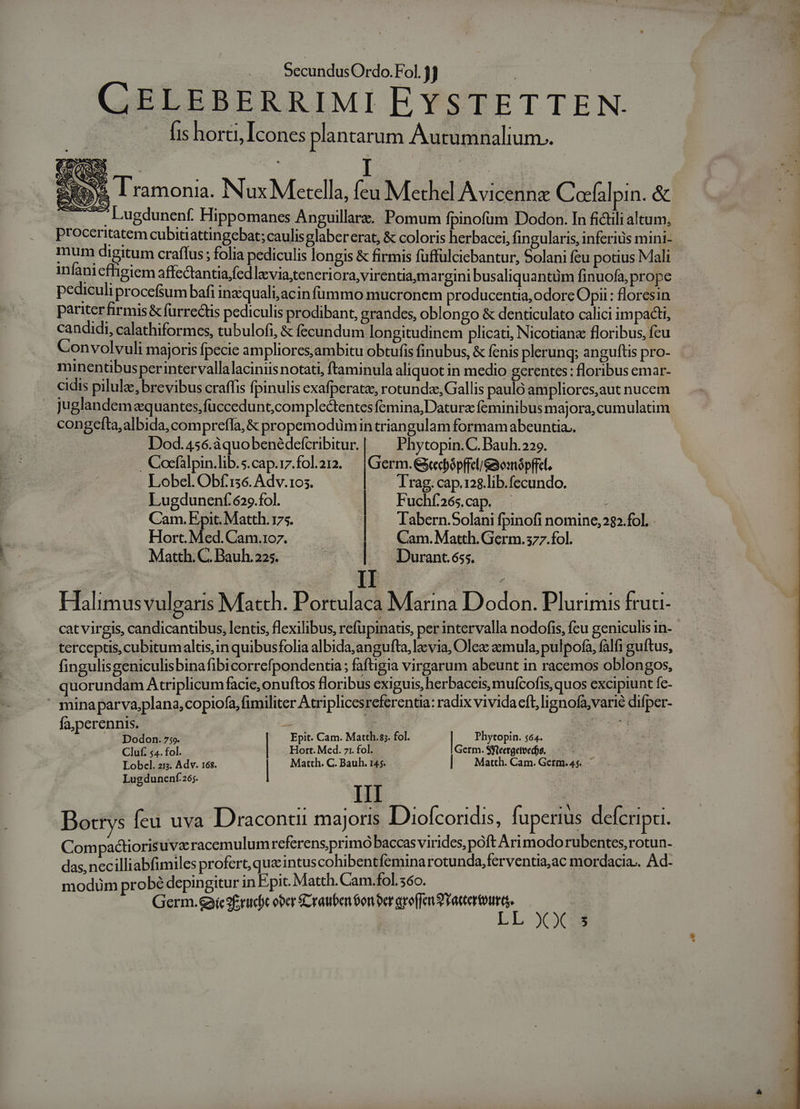 Secundus Ordo. Fol. 33
CELEBERRIMI EYSTETTEN-
ſis horti, Icones plantarum Autumnalium.
I
Stramonia. Nux Metella, ſeu Methel Avicennæ Cœſalpin. &
Lugdunenſ. Hippomanes Anguillaræ. Pomum ſpinoſum Dodon. In fictili altum,
proceritatem cubiti attingebat; caulis glaber erat, & coloris herbacei, ſingularis, inferiùs mini-
mum digitum craſſus; folia pediculis longis & firmis fuffulciebantur, Solani ſeu potius Mali
inſani effigiem affectantia, ſed lævia, teneriora, virentia, marginibus aliquantùm ſinuoſa, prope
pediculi proceſsum baſi inæquali, ac in ſummo mucronem producentia, odore Opii: flores in
pariter firmis & ſurrectis pediculis prodibant, grandes, oblongo & denticulato calici impacti,
candidi, calathiformes, tubuloſi, & ſecundum longitudinem plicati, Nicotianæ floribus, ſeu
Convolvuli majoris ſpecie ampliores, ambitu obtuſis ſinubus, & ſenis plerunq; anguſtis pro-
minentibus per intervalla laciniis notati, ſtaminula aliquot in medio gerentes: floribus emar-
cidis pilulæ, brevibus craſſis ſpinulis exaſperatæ, rotundæ, Gallis pauló ampliores, aut nucem
juglandem æquantes, ſuccedunt, complectentes ſemina, Daturæ ſeminibus majora, cumulatim
congeſta, albida, compreſſa, & propemodùm in triangulam formam abeuntia.
Dod. 456. à quo benè deſcribitur. Phytopin. C. Bauh. 229.
Cœſalpin. lib. 5. cap. 17. fol. 212. Germ. Stechöpffel/ Dornöpffel.
Lobel. Obſ. 156. Adv. 105. Trag. cap. 128. lib. ſecundo.
Lugdunenſ. 629. fol. Fuchſ. 265. cap.
Cam. Epit. Matth. 175. Tabern. Solani ſpinoſi nomine, 282. fol.
Hort. Med. Cam. 107. Cam. Matth. Germ. 377. fol.
Matth. C. Bauh. 225. Durant. 655.
II
Halimus vulgaris Matth. Portulaca Marina Dodon. Plurimis fruti-
cat virgis, candicantibus, lentis, flexilibus, reſupinatis, per intervalla nodoſis, ſeu geniculis in-
terceptis, cubitum altis, in quibus folia albida, anguſta, lævia, Oleæ æmula, pulpoſa, ſalſi guſtus,
ſingulis geniculis bina ſibi correſpondentia; faſtigia virgarum abeunt in racemos oblongos,
quorundam Atriplicum facie, onuſtos floribus exiguis, herbaceis, muſcoſis, quos excipiunt ſe-
mina parva, plana, copioſa, ſimiliter Atriplices referentia: radix vivida eſt, lignoſa, variè diſper-
ſa, perennis.
Dodon. 759. Epit. Cam. Matth. 83. fol. Phytopin. 564.
Cluſ. 54. fol. Hort. Med. 71. fol. Germ. Meergewechs.
Lobel. 213. Adv. 168. Matth. C. Bauh. 145. Matth. Cam. Germ. 45.
Lugdunenſ. 265.
III
Botrys ſeu uva Dracontii majoris Dioſcoridis, ſuperiùs deſcripti.
Compactioris uvæ racemulum referens, primó baccas virides, pòſt Ari modo rubentes, rotun-
das, nec illi abſimiles profert, quæ intus cohibent ſemina rotunda, ferventia, ac mordacia. Ad-
modùm probè depingitur in Epit. Matth. Cam. fol. 360.
Germ. Die Frucht oder Trauben von der groſſen Natterwurtz.
LL XX 3